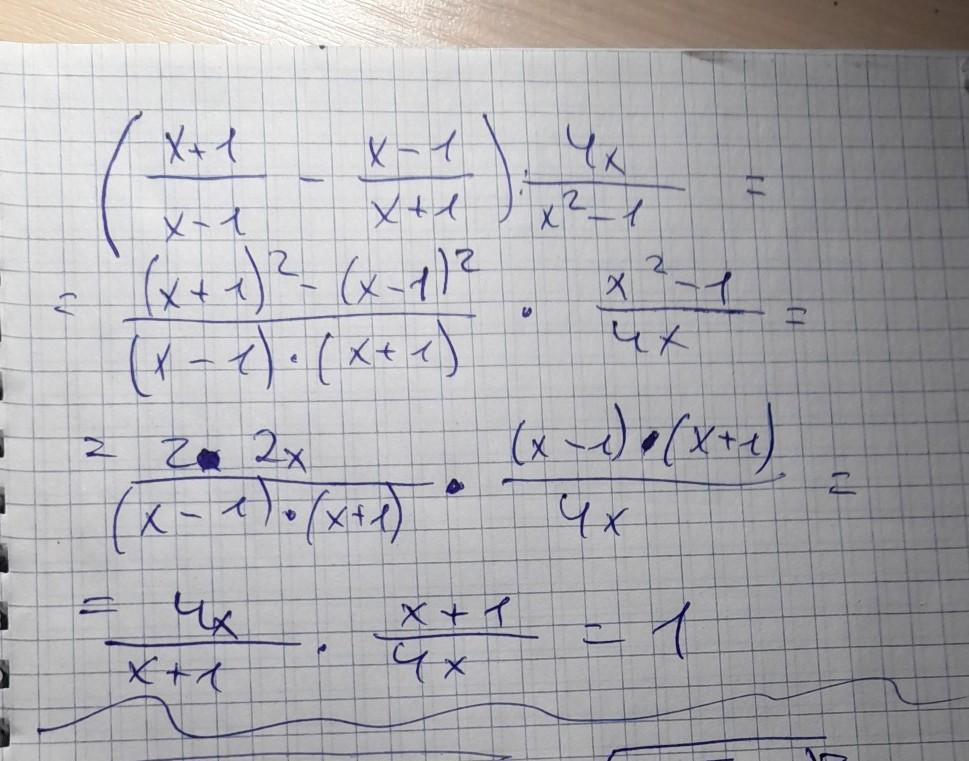 (x+1/x-1 - x-1/x+1) : 4x/x²-1 =
= (x+1)² - (x-1)²/(x-1)·(x+1) · x²-1/4x =
= 2 · 2x/(x-1)·(x+1) · (x-1)·(x+1)/4x =
= 4x/x+1 · x+1/4x = 1